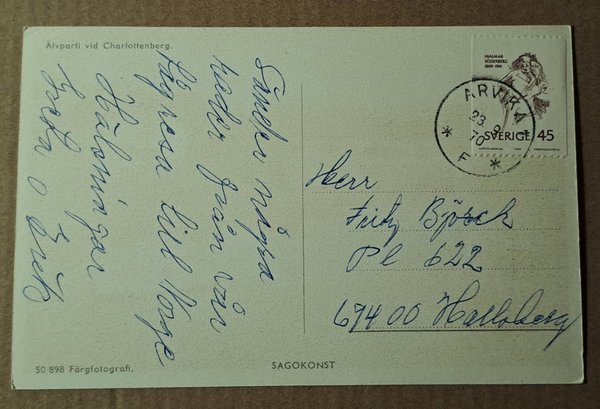 Älvparti vid Charlottenberg.
Sänder några
rader från vår
tågresa till Norge
Hälsningar
Greta o Erik
HJALMAR
SÖDERBERG
1869-1941
SVERIGE 45
ARVIKA
23 9
70
F
Herr
Fritz Björck
Pl 622
694 00 Hallsberg
50/898 Färgfotografi.
SAGOKONST